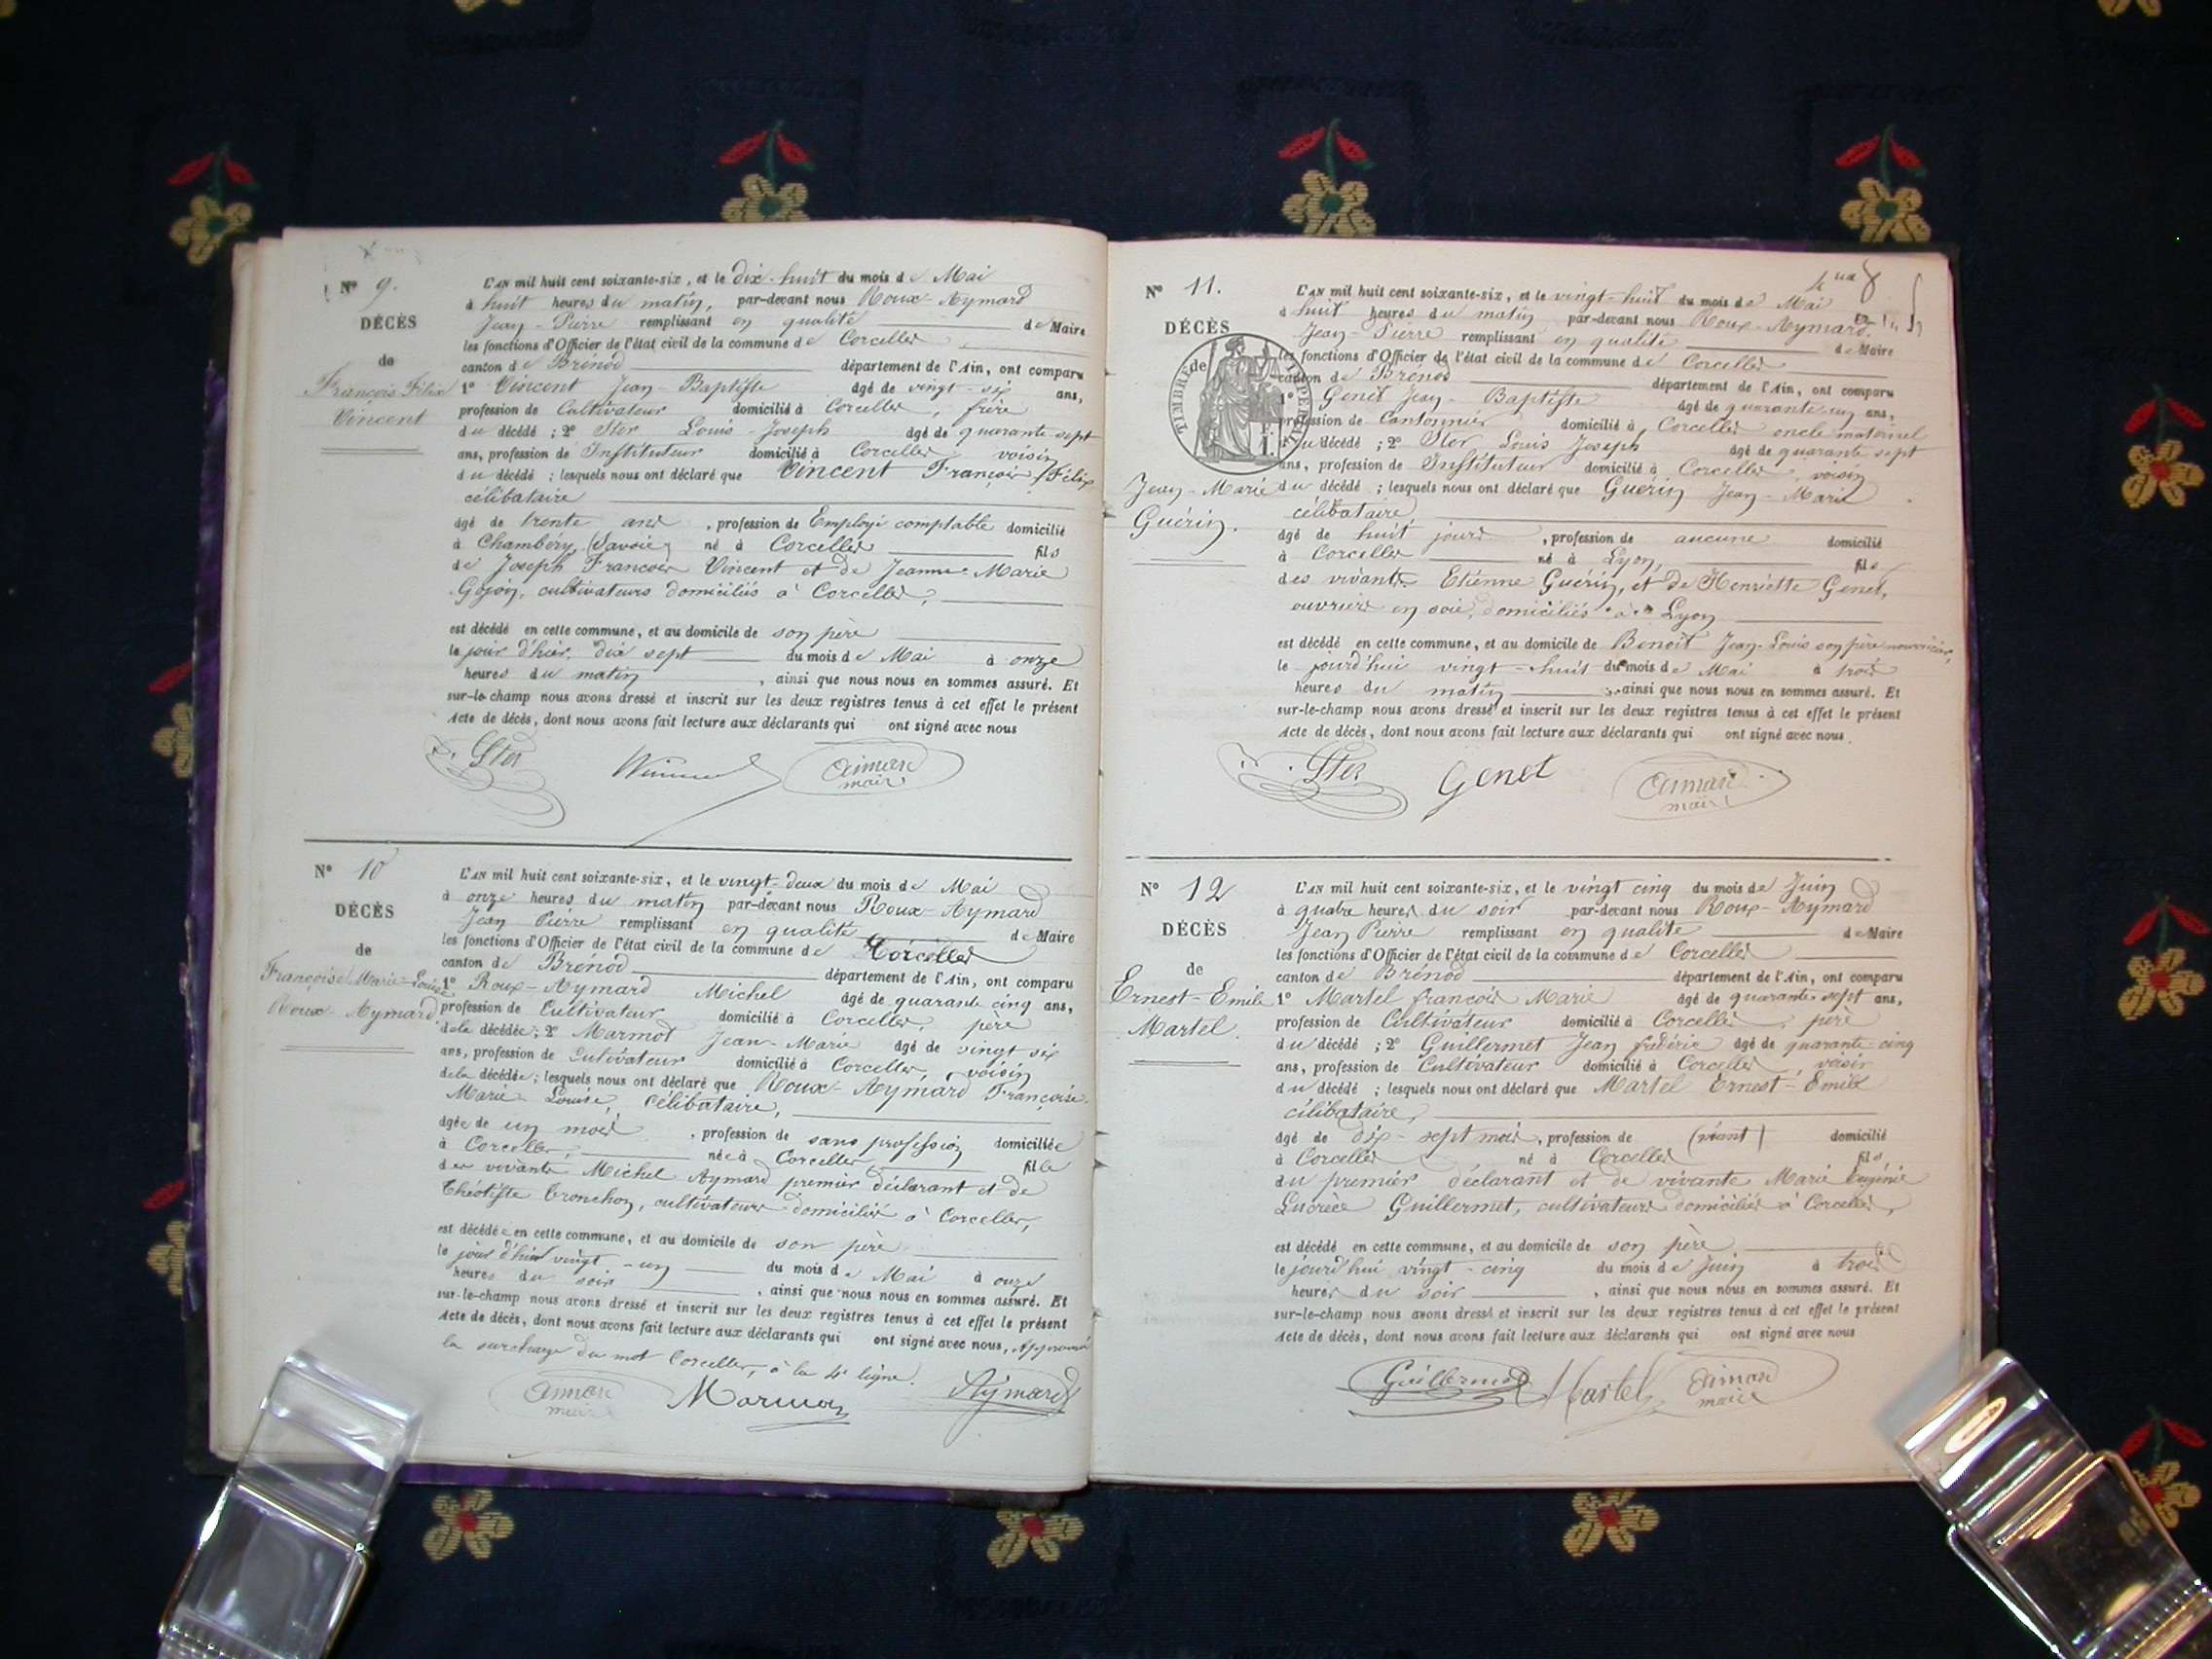 N° 9.
DÉCÈS
de
François Félix
Vincent
L'AN mil huit cent soixante-six, et le dix-huit du mois de Mai
à huit heures du matin, par-devant nous Roux-Aymard
Jean-Pierre remplissant en qualité de Maire
les fonctions d'Officier de l'état civil de la commune de Corcelles
canton de Brénod département de l'Ain, ont comparu
1° Vincent Jean-Baptiste âgé de vingt-six ans,
profession de Cultivateur domicilié à Corcelles, frère
du décédé ; 2° Ster Louis-Joseph âgé de quarante sept
ans, profession de Instituteur domicilié à Corcelles, voisin
du décédé ; lesquels nous ont déclaré que Vincent François Félix
célibataire
âgé de trente ans , profession de Employé comptable domicilié
à Chambéry (Savoie) né à Corcelles fils
de Joseph François Vincent et de Jeanne-Marie
Gojon, cultivateurs domiciliés à Corcelles,
est décédé en cette commune, et au domicile de son père
le jour d'hier, dix sept du mois de Mai à onze
heures du matin , ainsi que nous nous en sommes assuré. Et
sur-le-champ nous avons dressé et inscrit sur les deux registres tenus à cet effet le présent
Acte de décès, dont nous avons fait lecture aux déclarants qui ont signé avec nous
Ster Vincent Aimard
maire
N° 10
DÉCÈS
de
Françoise Marie-Louise
Roux-Aymard
L'AN mil huit cent soixante-six, et le vingt-deux du mois de Mai
à onze heures du matin par-devant nous Roux-Aymard
Jean Pierre remplissant en qualité de Maire
les fonctions d'Officier de l'état civil de la commune de Corcelles
canton de Brénod département de l'Ain, ont comparu
1° Roux-Aymard Michel âgé de quarante cinq ans,
profession de Cultivateur domicilié à Corcelles, père
de la décédée ; 2° Marmot Jean-Marie âgé de vingt six
ans, profession de Cultivateur domicilié à Corcelles, voisin
de la décédée ; lesquels nous ont déclaré que Roux-Aymard Françoise
Marie Louise, célibataire,
âgée de un mois , profession de sans profession domiciliée
à Corcelles, née à Corcelles fille
des vivants Michel Aymard premier déclarant et de
Théotiste Tronchon, cultivateurs domiciliés à Corcelles,
est décédée en cette commune, et au domicile de son père
le jour d'hier vingt-un du mois de Mai à onze
heures du soir , ainsi que nous nous en sommes assuré. Et
sur-le-champ nous avons dressé et inscrit sur les deux registres tenus à cet effet le présent
Acte de décès, dont nous avons fait lecture aux déclarants qui ont signé avec nous, Approuvé
la surcharge du mot Corcelles, à la 4e ligne.
Aimard Marmot Aymard
maire
N° 11.
DÉCÈS
de
TIMBRE IMPÉRIAL
Jean-Marie
Guérin.
L'AN mil huit cent soixante-six, et le vingt-huit du mois de Mai
à huit heures du matin par-devant nous Roux-Aymard
Jean-Pierre remplissant en qualité de Maire
les fonctions d'Officier de l'état civil de la commune de Corcelles
canton de Brénod département de l'Ain, ont comparu
1° Genet Jean-Baptiste âgé de quarante un ans,
profession de Cantonnier domicilié à Corcelles oncle maternel
du décédé ; 2° Ster Louis Joseph âgé de quarante sept
ans, profession de Instituteur domicilié à Corcelles, voisin
du décédé ; lesquels nous ont déclaré que Guérin Jean-Marie
célibataire
âgé de huit jours , profession de aucune domicilié
à Corcelles né à Lyon, fils
des vivants Etienne Guérin, et de Henriette Genet,
ouvriers en soie, domiciliés à Lyon
est décédé en cette commune, et au domicile de Benoit Jean-Louis son père nourricier,
le jourd'hui vingt-huit du mois de Mai à trois
heures du matin , ainsi que nous nous en sommes assuré. Et
sur-le-champ nous avons dressé et inscrit sur les deux registres tenus à cet effet le présent
Acte de décès, dont nous avons fait lecture aux déclarants qui ont signé avec nous.
Ster Genet Aimard
maire
N° 12
DÉCÈS
de
Ernest-Emile
Martel.
L'AN mil huit cent soixante-six, et le vingt cinq du mois de Juin
à quatre heures du soir par-devant nous Roux-Aymard
Jean Pierre remplissant en qualité de Maire
les fonctions d'Officier de l'état civil de la commune de Corcelles
canton de Brénod département de l'Ain, ont comparu
1° Martel françois Marie âgé de quarante sept ans,
profession de Cultivateur domicilié à Corcelles, père
du décédé ; 2° Guillermet Jean frédéric âgé de quarante-cinq
ans, profession de Cultivateur domicilié à Corcelles, voisin
du décédé ; lesquels nous ont déclaré que Martel Ernest-Emile
célibataire,
âgé de dix-sept mois, profession de (néant) domicilié
à Corcelles né à Corcelles fils
du premier déclarant et de vivante Marie Eugénie
Lucrèce Guillermet, cultivateurs domiciliés à Corcelles,
est décédé en cette commune, et au domicile de son père
le jourd'hui vingt-cinq du mois de Juin à trois
heures du soir , ainsi que nous nous en sommes assuré. Et
sur-le-champ nous avons dressé et inscrit sur les deux registres tenus à cet effet le présent
Acte de décès, dont nous avons fait lecture aux déclarants qui ont signé avec nous
Guillermet Martel Aimard
maire